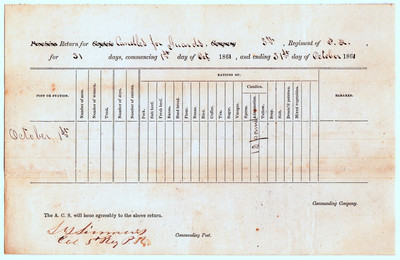 Provision Return for Captain Candles for Guards. Company 5th, Regiment of P. R.
for 31 days, commencing 1st day of Oct 1861, and ending 31st day of October 1861
RATIONS OF:
Candles.
POST OR STATION. Number of men. Number of women. Total. Number of days. Number of rations. Pork. Salt beef. Fresh beef. Bacon. Hard bread. Flour. Beans. Rice. Coffee. Tea. Sugar. Vinegar. Sperm. Adamantine. Tallow. Soap. Salt. Desic'd potatoes. Mixed vegetables. REMARKS.
October, 1st
Commanding Company.
The A. C. S. will issue agreeably to the above return.
S G Simmons
Col 5th Reg P. R. Commanding Post.